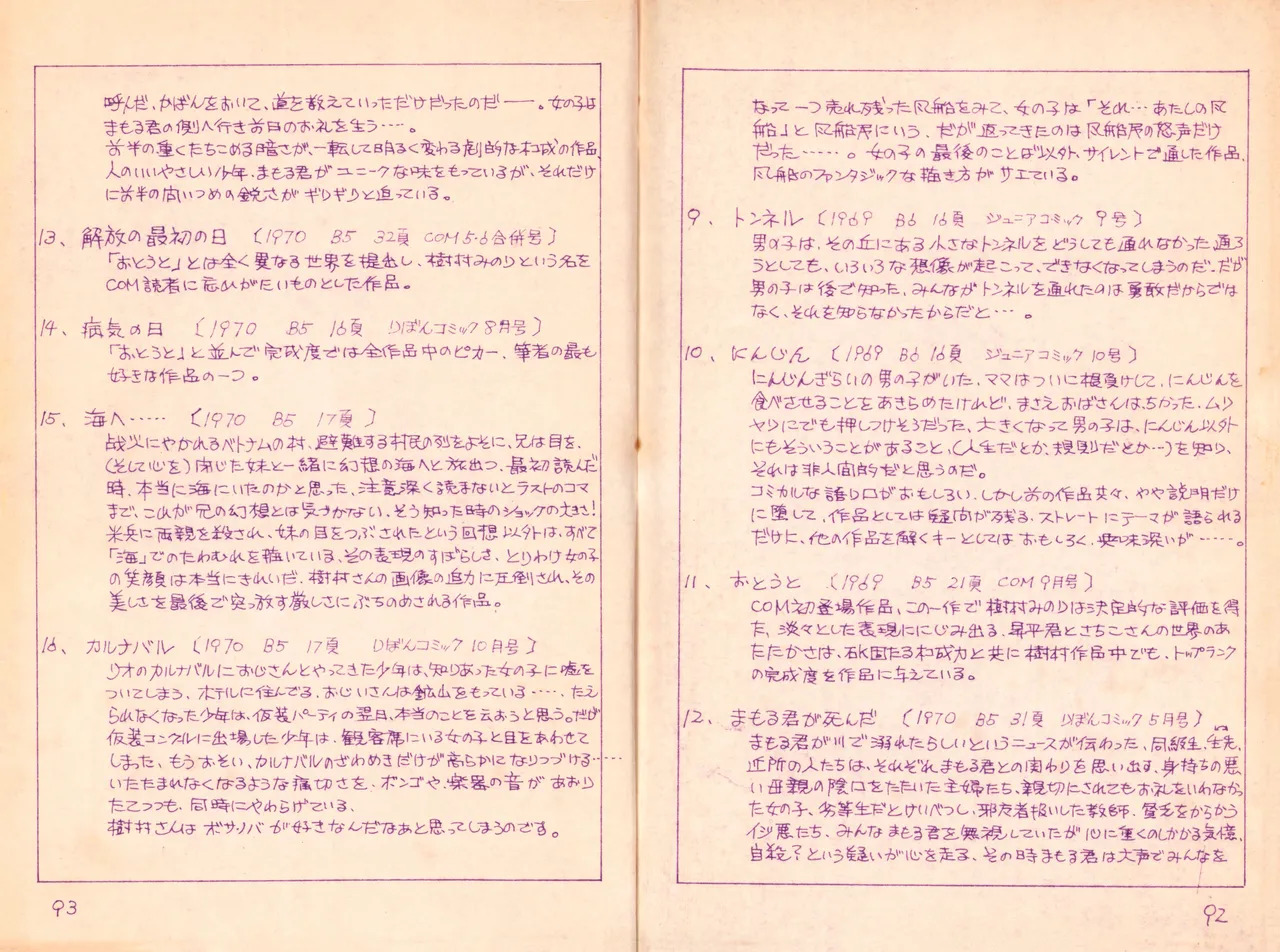 なって一つ売れ残った風船をみて、女の子は「それ…あたしの風
船」と風船屋にいう、だが返ってきたのは風船屋の怒声だけ
だった……。女の子の最後のことば以外、サイレントで通した作品、
風船のファンタジックな描き方がサエている。
9、トンネル〔1969 B6 16頁 ジュニアコミック 9号〕
男の子は、その丘にある小さなトンネルをどうしても通れなかった、通ろ
うとしても、いろいろな想像が起こって、できなくなってしまうのだ、だが
男の子は後で知った、みんながトンネルを通れたのは勇敢だからでは
なく、それを知らなかったからだと…。
10、にんじん〔1969 B6 16頁 ジュニアコミック 10号〕
にんじんぎらいの男の子がいた、ママはついに根負けして、にんじんを
食べさせることをあきらめたけれど、まさえおばさんはちがった、ムリ
ヤリにでも押しつけそうだった、大きくなって男の子は、にんじん以外
にもそういうことがあること、(人生だとか、規則だとか…)を知り、
それは非人間的だと思うのだ。
コミカルな語り口がおもしろい、しかし前の作品共々、やや説明だけ
に堕して、作品としては疑問が残る、ストレートにテーマが語られる
だけに、他の作品を解くキーとしてはおもしろく、興味深いが……。
11、おとうと〔1969 B5 21頁 COM 9月号〕
COM初登場作品、この一作で樹村みのりは決定的な評価を得
た、淡々とした表現ににじみ出る、昇平君とさちこさんの世界のあ
たたかさは、確固たる構成力と共に樹村作品中でも、トップランク
の完成度を作品に与えている。
12、まもる君が死んだ〔1970 B5 31頁 りぼんコミック 5月号〕
まもる君が川で溺れたらしいというニュースが伝わった、同級生、先生、
近所の人たちは、それぞれまもる君との関わりを思い出す、身持ちの悪
い母親の陰口をたたいた主婦たち、親切にされてもお礼をいわなかっ
た女の子、劣等生だとけいべつし、邪魔者扱いした教師、貧乏をからかう
イジ悪たち、みんなまもる君を無視していたが心に重くのしかかる気憶、
自殺?という疑いが心を走る、その時まもる君は大声でみんなを
92
呼んだ、かばんをおいて、道を教えていっただけだったのだ――。女の子は
まもる君の側へ行き前日のお礼を生う…。
前半の重くたちこめる暗さが、一転して明るく変わる劇的な構成の作品、
人のいいやさしい少年、まもる君がユニークな味をもっているが、それだけ
に前半の問いつめの鋭さがギリギリと迫っている。
13、解放の最初の日〔1970 B5 32頁 COM 5・6合併号〕
「おとうと」とは全く異なる世界を提出し、樹村みのりという名を
COM読者に忘れがたいものとした作品。
14、病気の日〔1970 B5 16頁 りぼんコミック 8月号〕
「おとうと」と並んで完成度では全作品中のピカー、筆者の最も
好きな作品の一つ。
15、海へ……〔1970 B5 17頁〕
战火にやかれるベトナムの村、避難する村民の列をよそに、兄は目を、
(そして心を)閉じた妹と一緒に幻想の海へと旅出つ、最初読んだ
時、本当に海にいたのかと思った、注意深く読まないとラストのコマ
まで、これが兄の幻想とは気づかない、そう知った時のショックの大きさ!
米兵に両親を殺され、妹の目をつぶされたという回想以外は、すべて
「海」でのたわむれを描いている、その表現のすばらしさ、とりわけ女の子
の笑顔は本当にきれいだ、樹村さんの画像の迫力に圧倒され、その
美しさを最後で突っ放す厳しさにぶちのめされる作品。
16、カルナバル〔1970 B5 17頁 りぼんコミック 10月号〕
リオのカルナバルにおじさんとやってきた少年は、知りあった女の子に嘘を
ついてしまう、ホテルに住んでる、おじいさんは鉱山をもっている……、たえ
られなくなった少年は、仮装パーティの翌日、本当のことを云おうと思う。だが
仮装コンクルに出場した少年は、観客席にいる女の子と目をあわせて
しまった、もうおそい、カルナバルのざわめきだけが高らかになりつづける……
いたたまれなくなるような痛切さを、ボンゴや、楽器の音があおり
たてつつも、同時にやわらげている、
樹村さんはボサノバが好きなんだなあと思ってしまうのです。
93